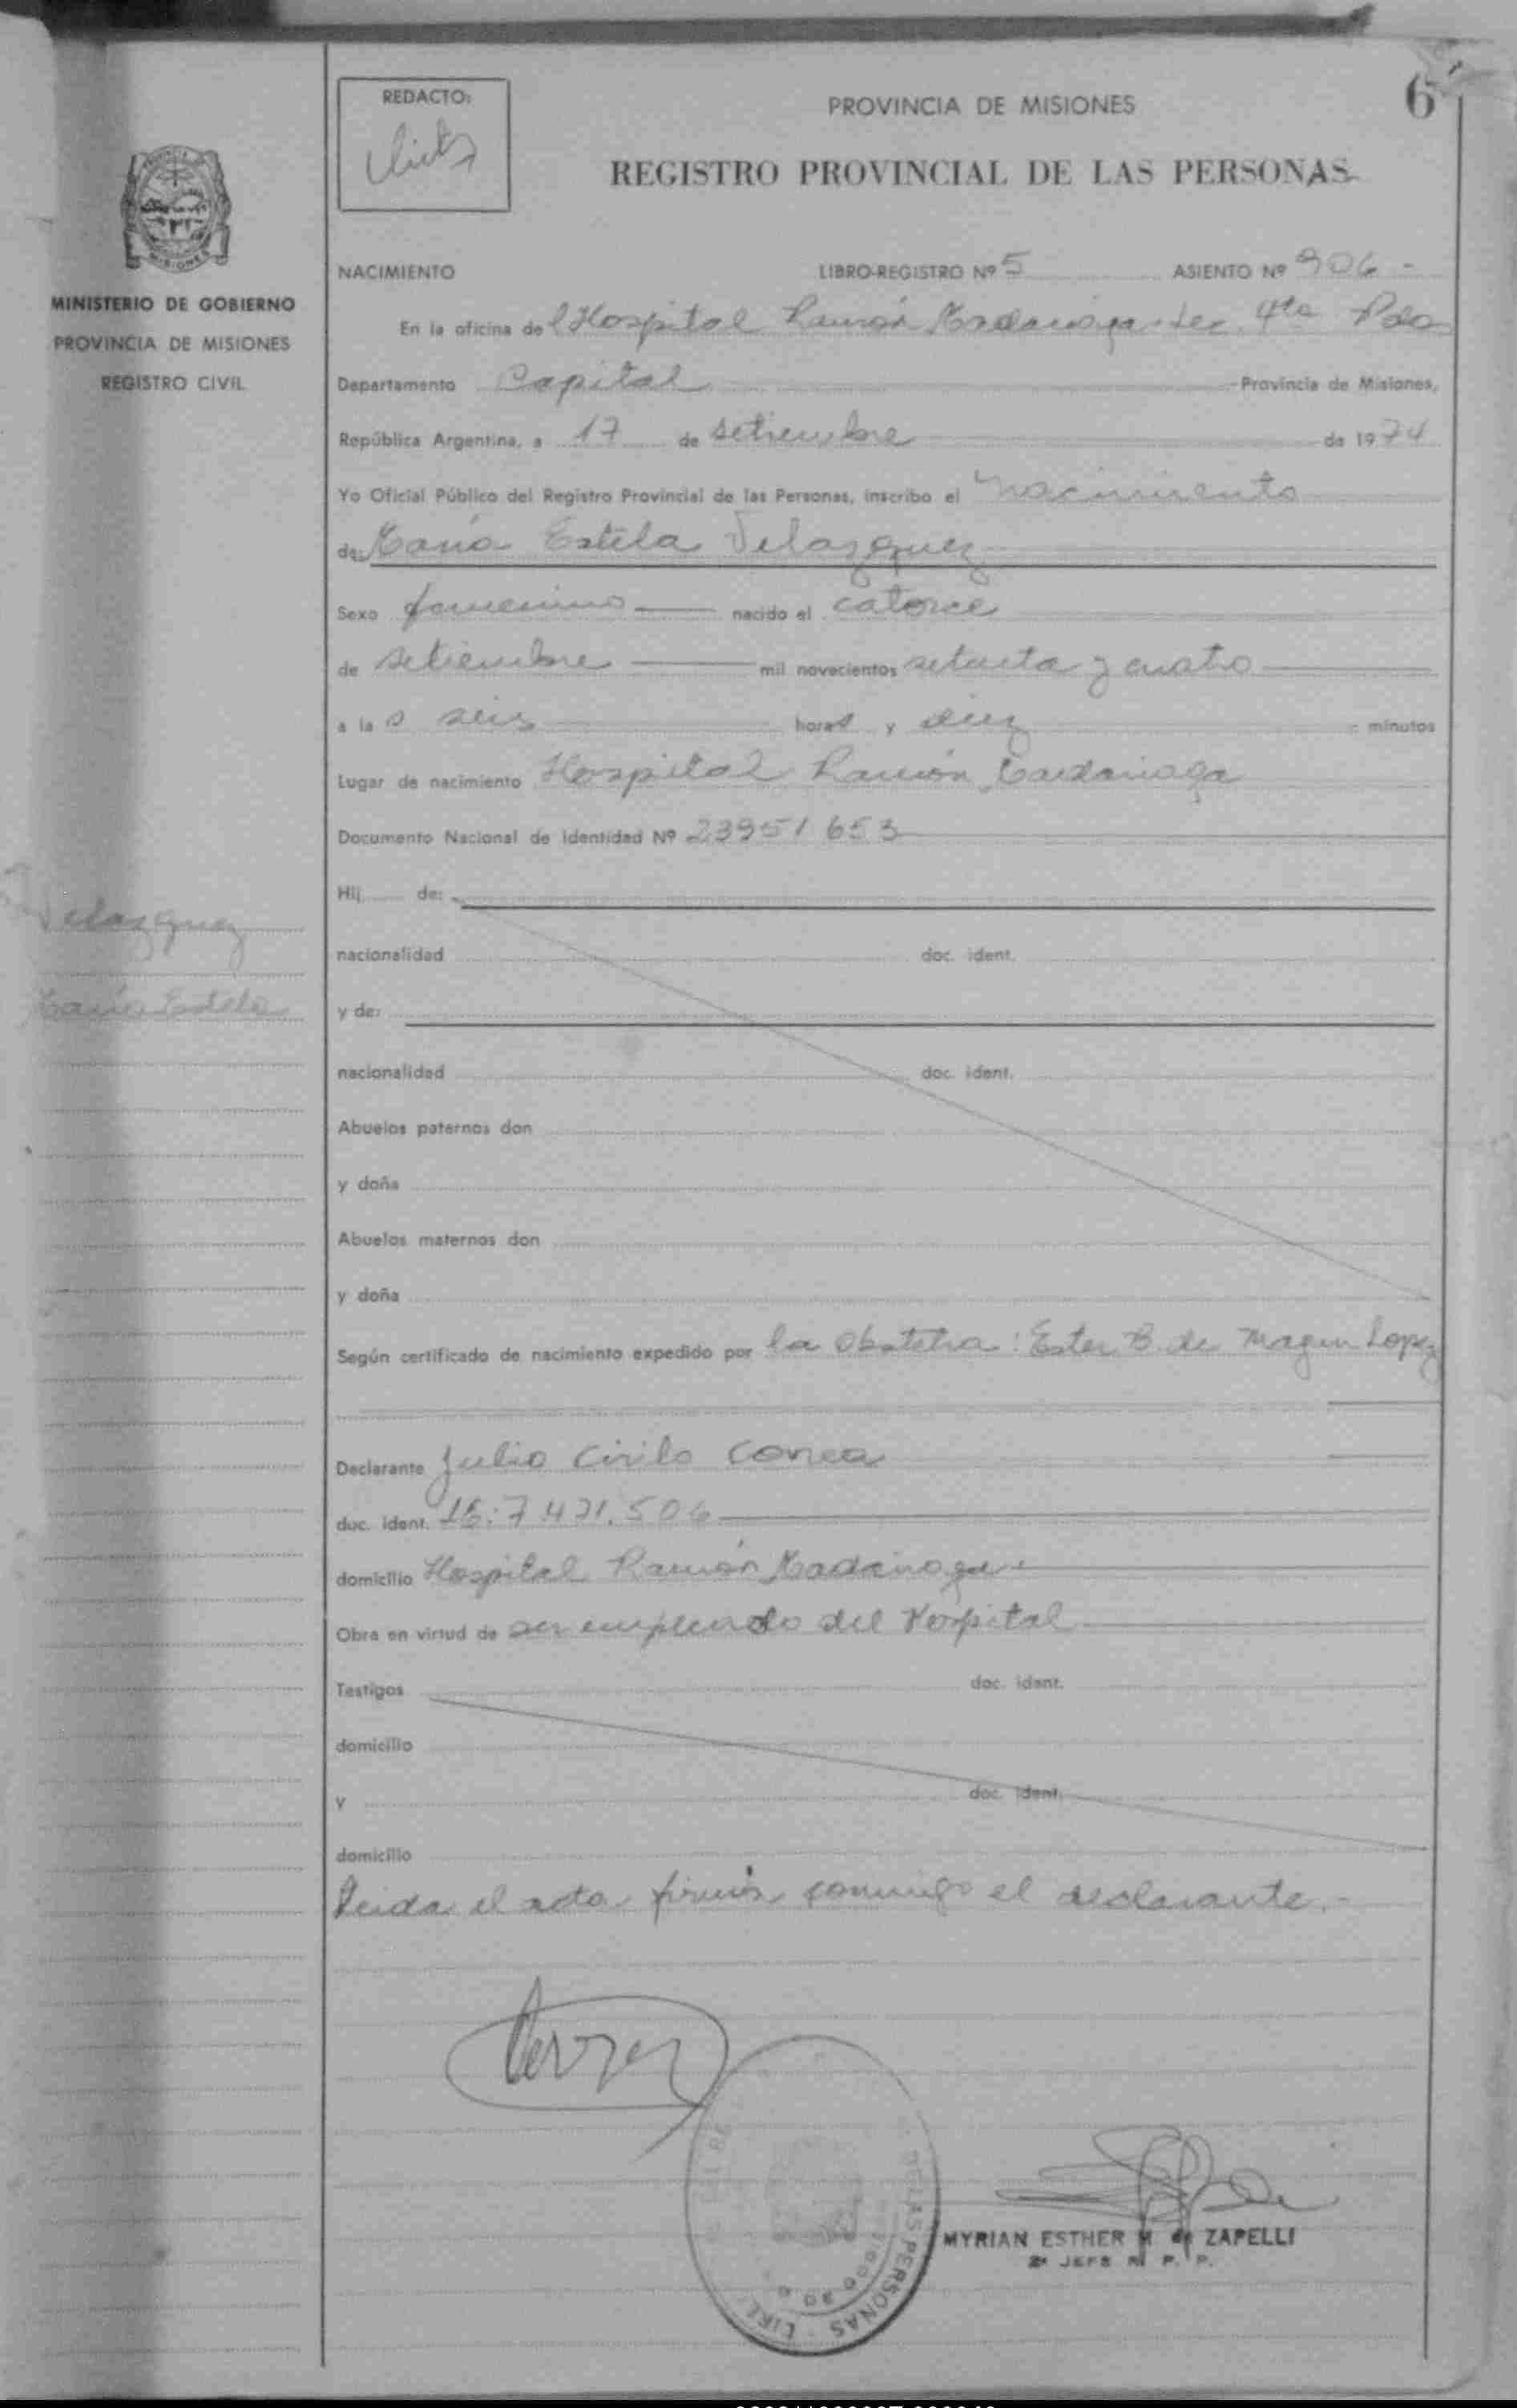 REDACTO:
PROVINCIA DE MISIONES
6
REGISTRO PROVINCIAL DE LAS PERSONAS
MISIONES
MINISTERIO DE GOBIERNO
PROVINCIA DE MISIONES
REGISTRO CIVIL
NACIMIENTO LIBRO-REGISTRO Nº 5 ASIENTO Nº 906 -
En la oficina del Hospital Ramón Madariaga Sec. 4ta Pdas
Departamento Capital Provincia de Misiones,
República Argentina, a 17 de setiembre de 1974
Yo Oficial Público del Registro Provincial de las Personas, inscribo el nacimiento
de: María Estela Velazquez
Sexo femenino nacido el catorce
de setiembre mil novecientos setenta y cuatro
a las seis horas y diez minutos
Lugar de nacimiento Hospital Ramón Madariaga
Documento Nacional de Identidad Nº 23951653
Hij de:
Velazquez
nacionalidad doc. ident.
María Estela
y de:
nacionalidad doc. ident.
Abuelos paternos don
y doña
Abuelos maternos don
y doña
Según certificado de nacimiento expedido por la Obstetra: Ester B. de Magin Lopez
Declarante Julio Cirilo Correa
doc. ident. 7.471.506
domicilio Hospital Ramón Madariaga
Obra en virtud de ser empleado del Hospital
Testigos doc. ident.
domicilio
y doc. ident.
domicilio
Leida el acta firma conmigo el declarante.-
DE LAS PERSONAS
MYRIAN ESTHER M de ZAPELLI
2ª JEFE R. P. P.